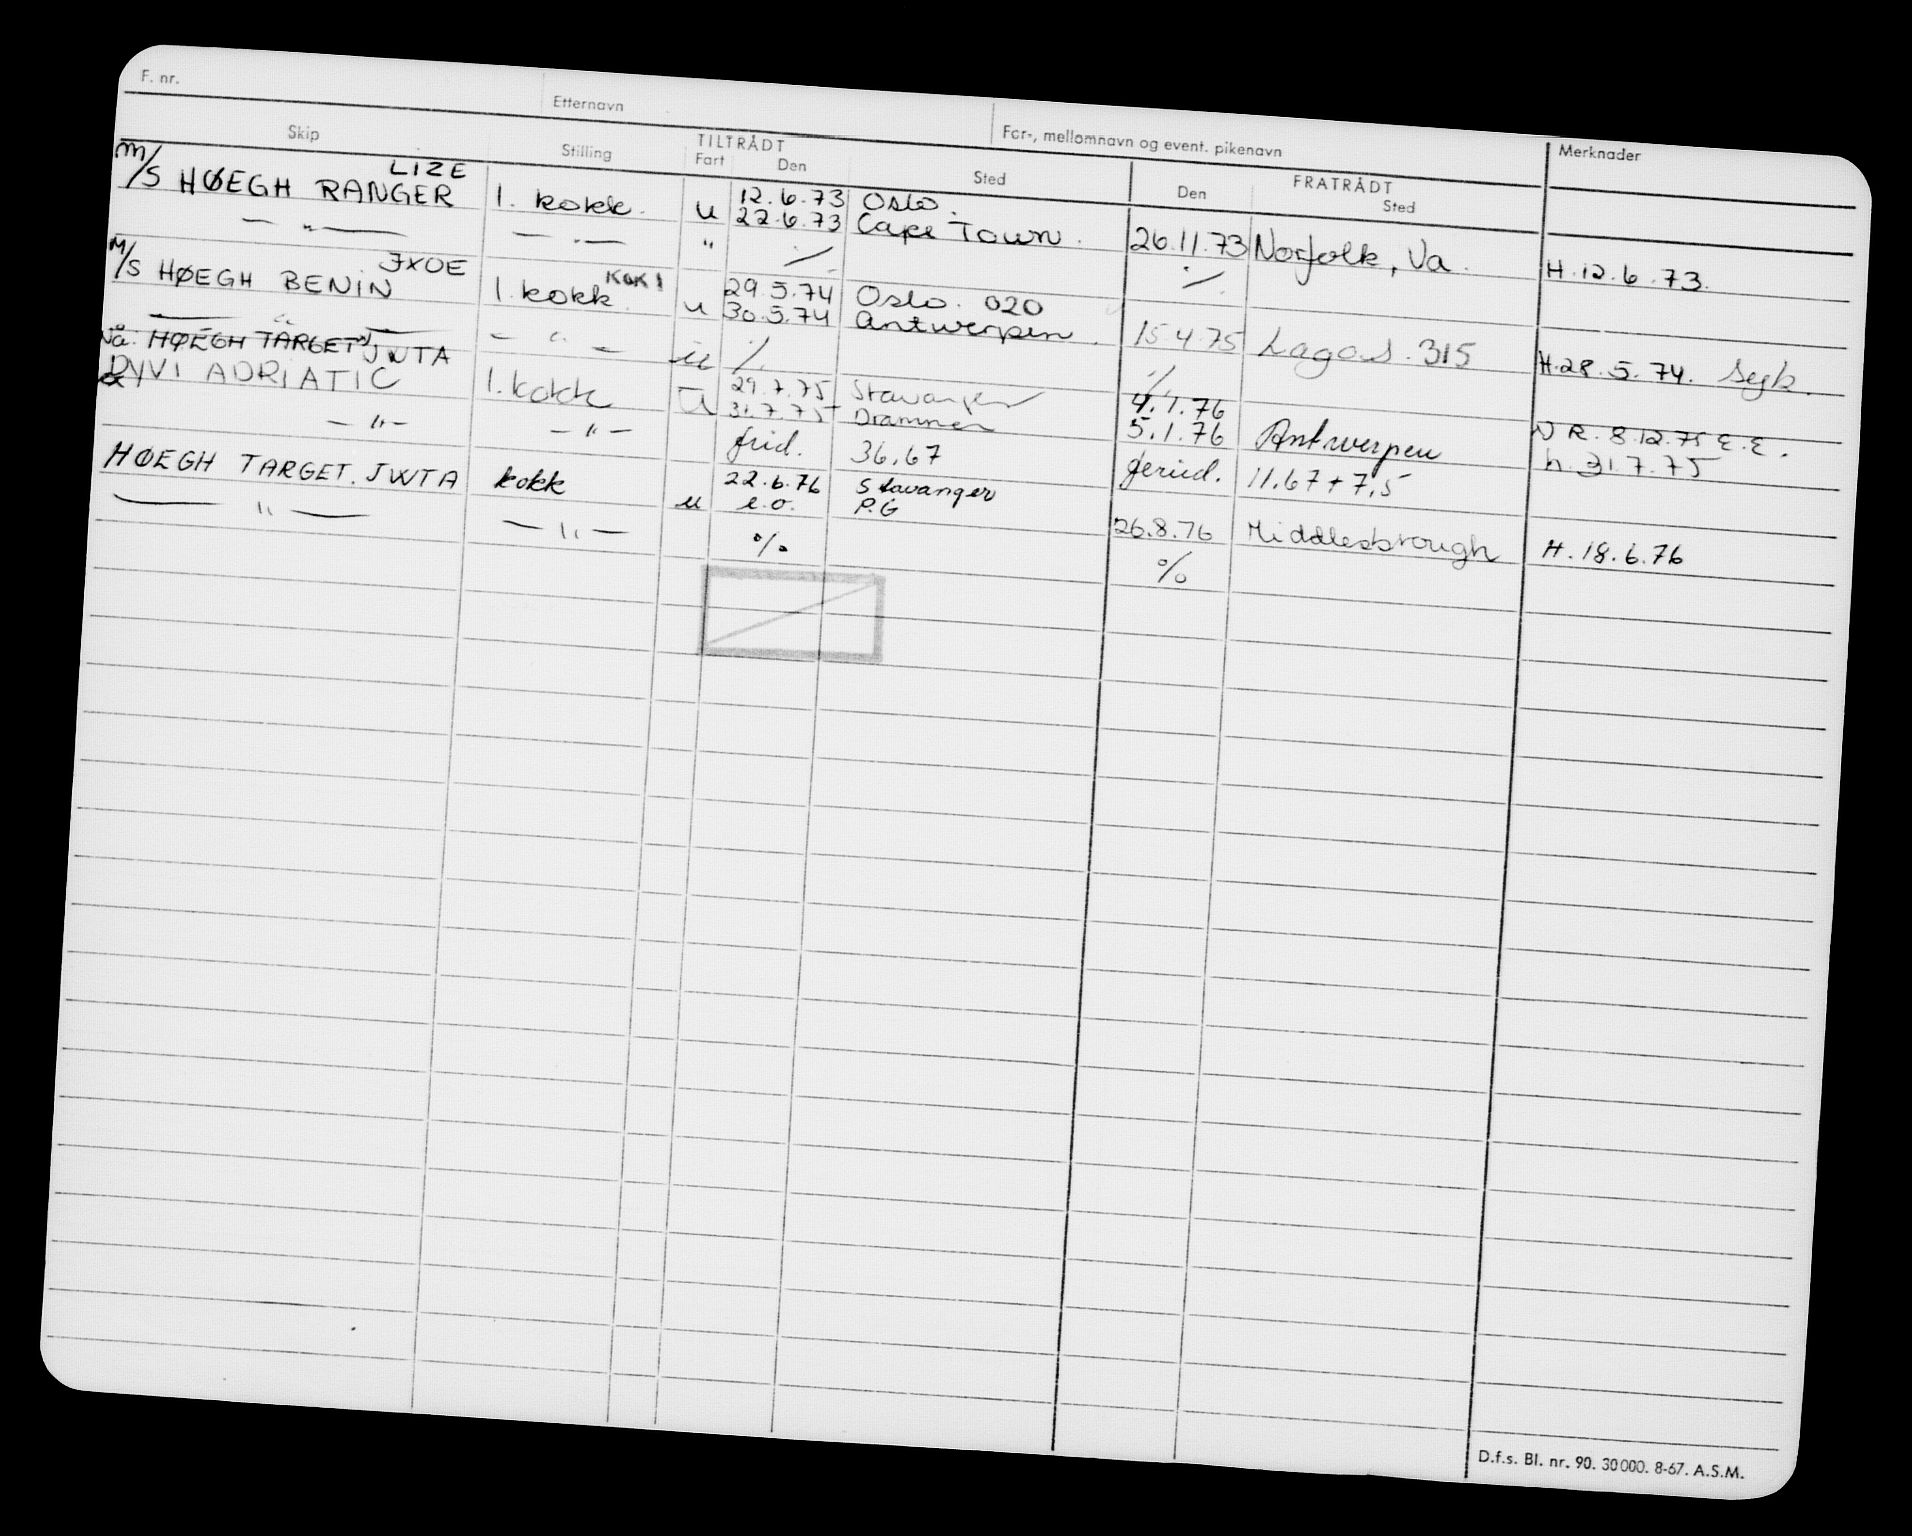 F. nr.
Etternavn
For-, mellomnavn og event. pikenavn
Merknader
Skip
Stilling
TILTRÅDT
Fart
Den
Sted
FRATRÅDT
Den
Sted
M/S HØEGH RANGER LIZE 1. kokk. u 12.6.73 Oslo.
22.6.73 Cape Town. 26.11.73 Norfolk, Va. H. 12.6.73.
— " — — " — " ·/. ·/.
M/S HØEGH BENIN JXOE 1. kokk. KOK 1 u 29.5.74 Oslo. 020
30.5.74 Antwerpen. 15.4.75 Lagos. 315 H. 28.5.74.
— " — — " — ·/. ·/.
HØEGH TARGET JWTA
DYVI ADRIATIC 1. kokk U 29.7.75 Stavanger 4.1.76
31.7.75 Drammen 5.1.76 Antwerpen N R. 8.12.75 E.E.
— " — — " — frid. 36,67 feried. 11.67 + 7,5 h. 31.7.75
HØEGH TARGET. JWTA kokk u 22.6.76 Stavanger
e.o. P.G 26.8.76 Middlesbrough H. 18.6.76
— " — — " — % %
D.f.s. Bl. nr. 90. 30 000. 8-67. A.S.M.